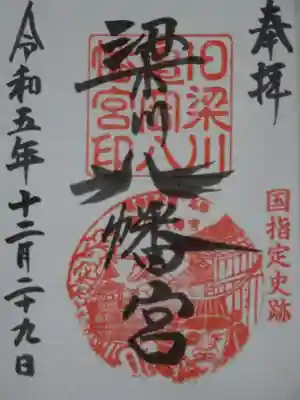 奉拝
国指定史跡
梁川八幡宮
旧梁川
亀岡八
幡宮印
令和五年十二月二十九日